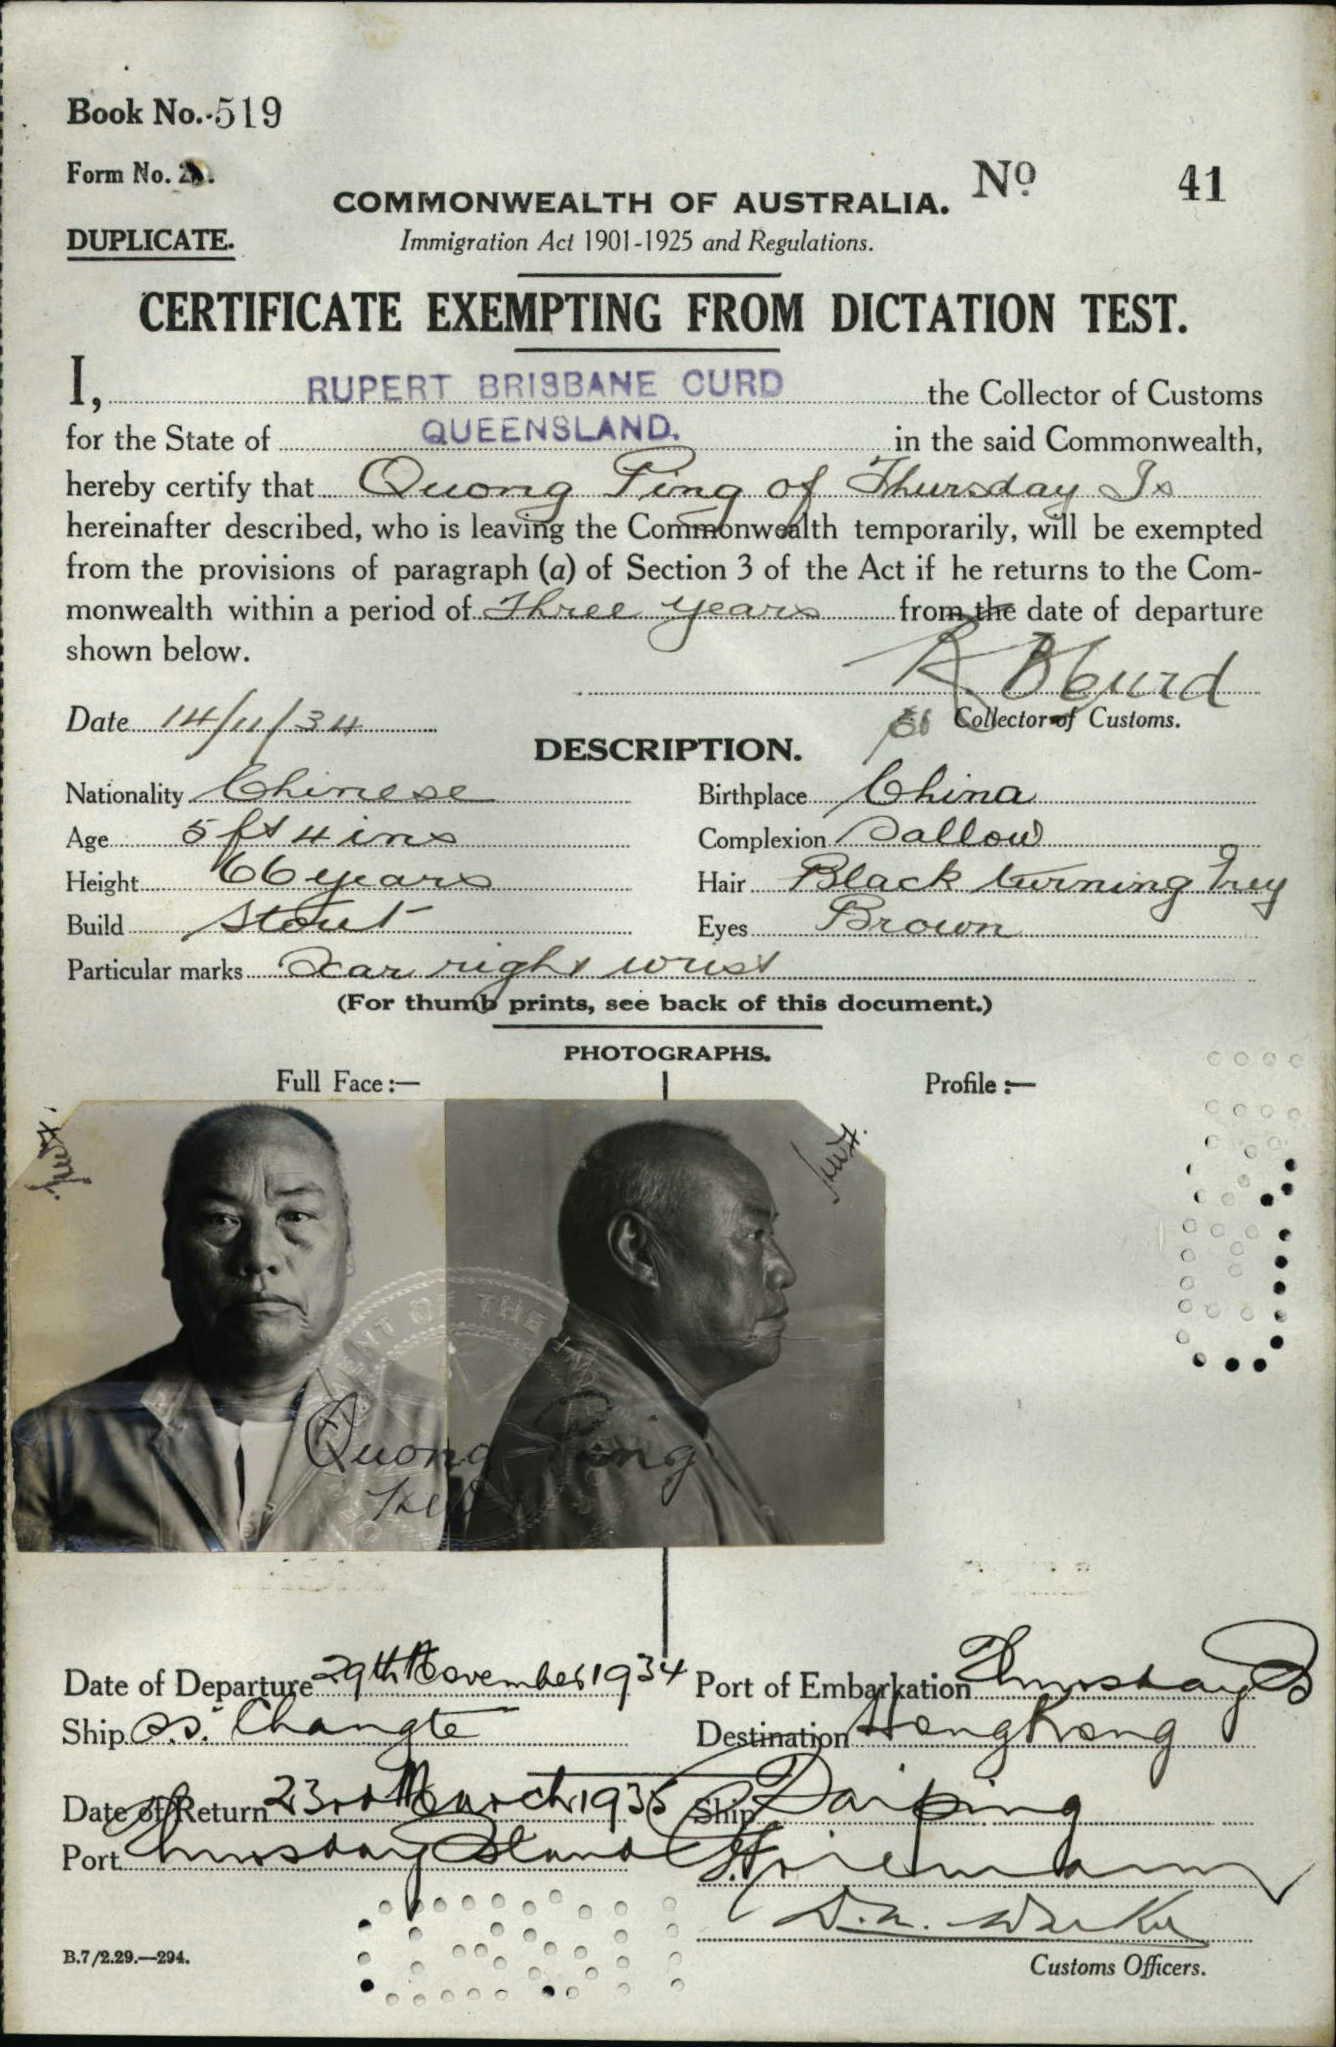 Book No. 519
Form No. 21.
COMMONWEALTH OF AUSTRALIA. No 41
DUPLICATE.
Immigration Act 1901-1925 and Regulations.
CERTIFICATE EXEMPTING FROM DICTATION TEST.
I, RUPERT BRISBANE CURD the Collector of Customs
for the State of QUEENSLAND. in the said Commonwealth,
hereby certify that Quong Ping of Thursday Is
hereinafter described, who is leaving the Commonwealth temporarily, will be exempted
from the provisions of paragraph (a) of Section 3 of the Act if he returns to the Com-
monwealth within a period of Three years from the date of departure
shown below.
R B Curd
Date 14/11/34 Collector of Customs.
DESCRIPTION.
Nationality Chinese Birthplace China
Age 5 ft 4 ins Complexion Sallow
Height 66 years Hair Black turning Grey
Build Stout Eyes Brown
Particular marks Scar right wrist
(For thumb prints, see back of this document.)
PHOTOGRAPHS.
Full Face :— Profile :—
ENT OF THE
Quong Ping
Date of Departure 29th November 1934 Port of Embarkation Thursday Is
Ship S.S. Changte Destination HongKong
Date of Return 23rd March 1935 Ship Taiping
Port Thursday Island
Customs Officers.
B.7/2.29.—294.